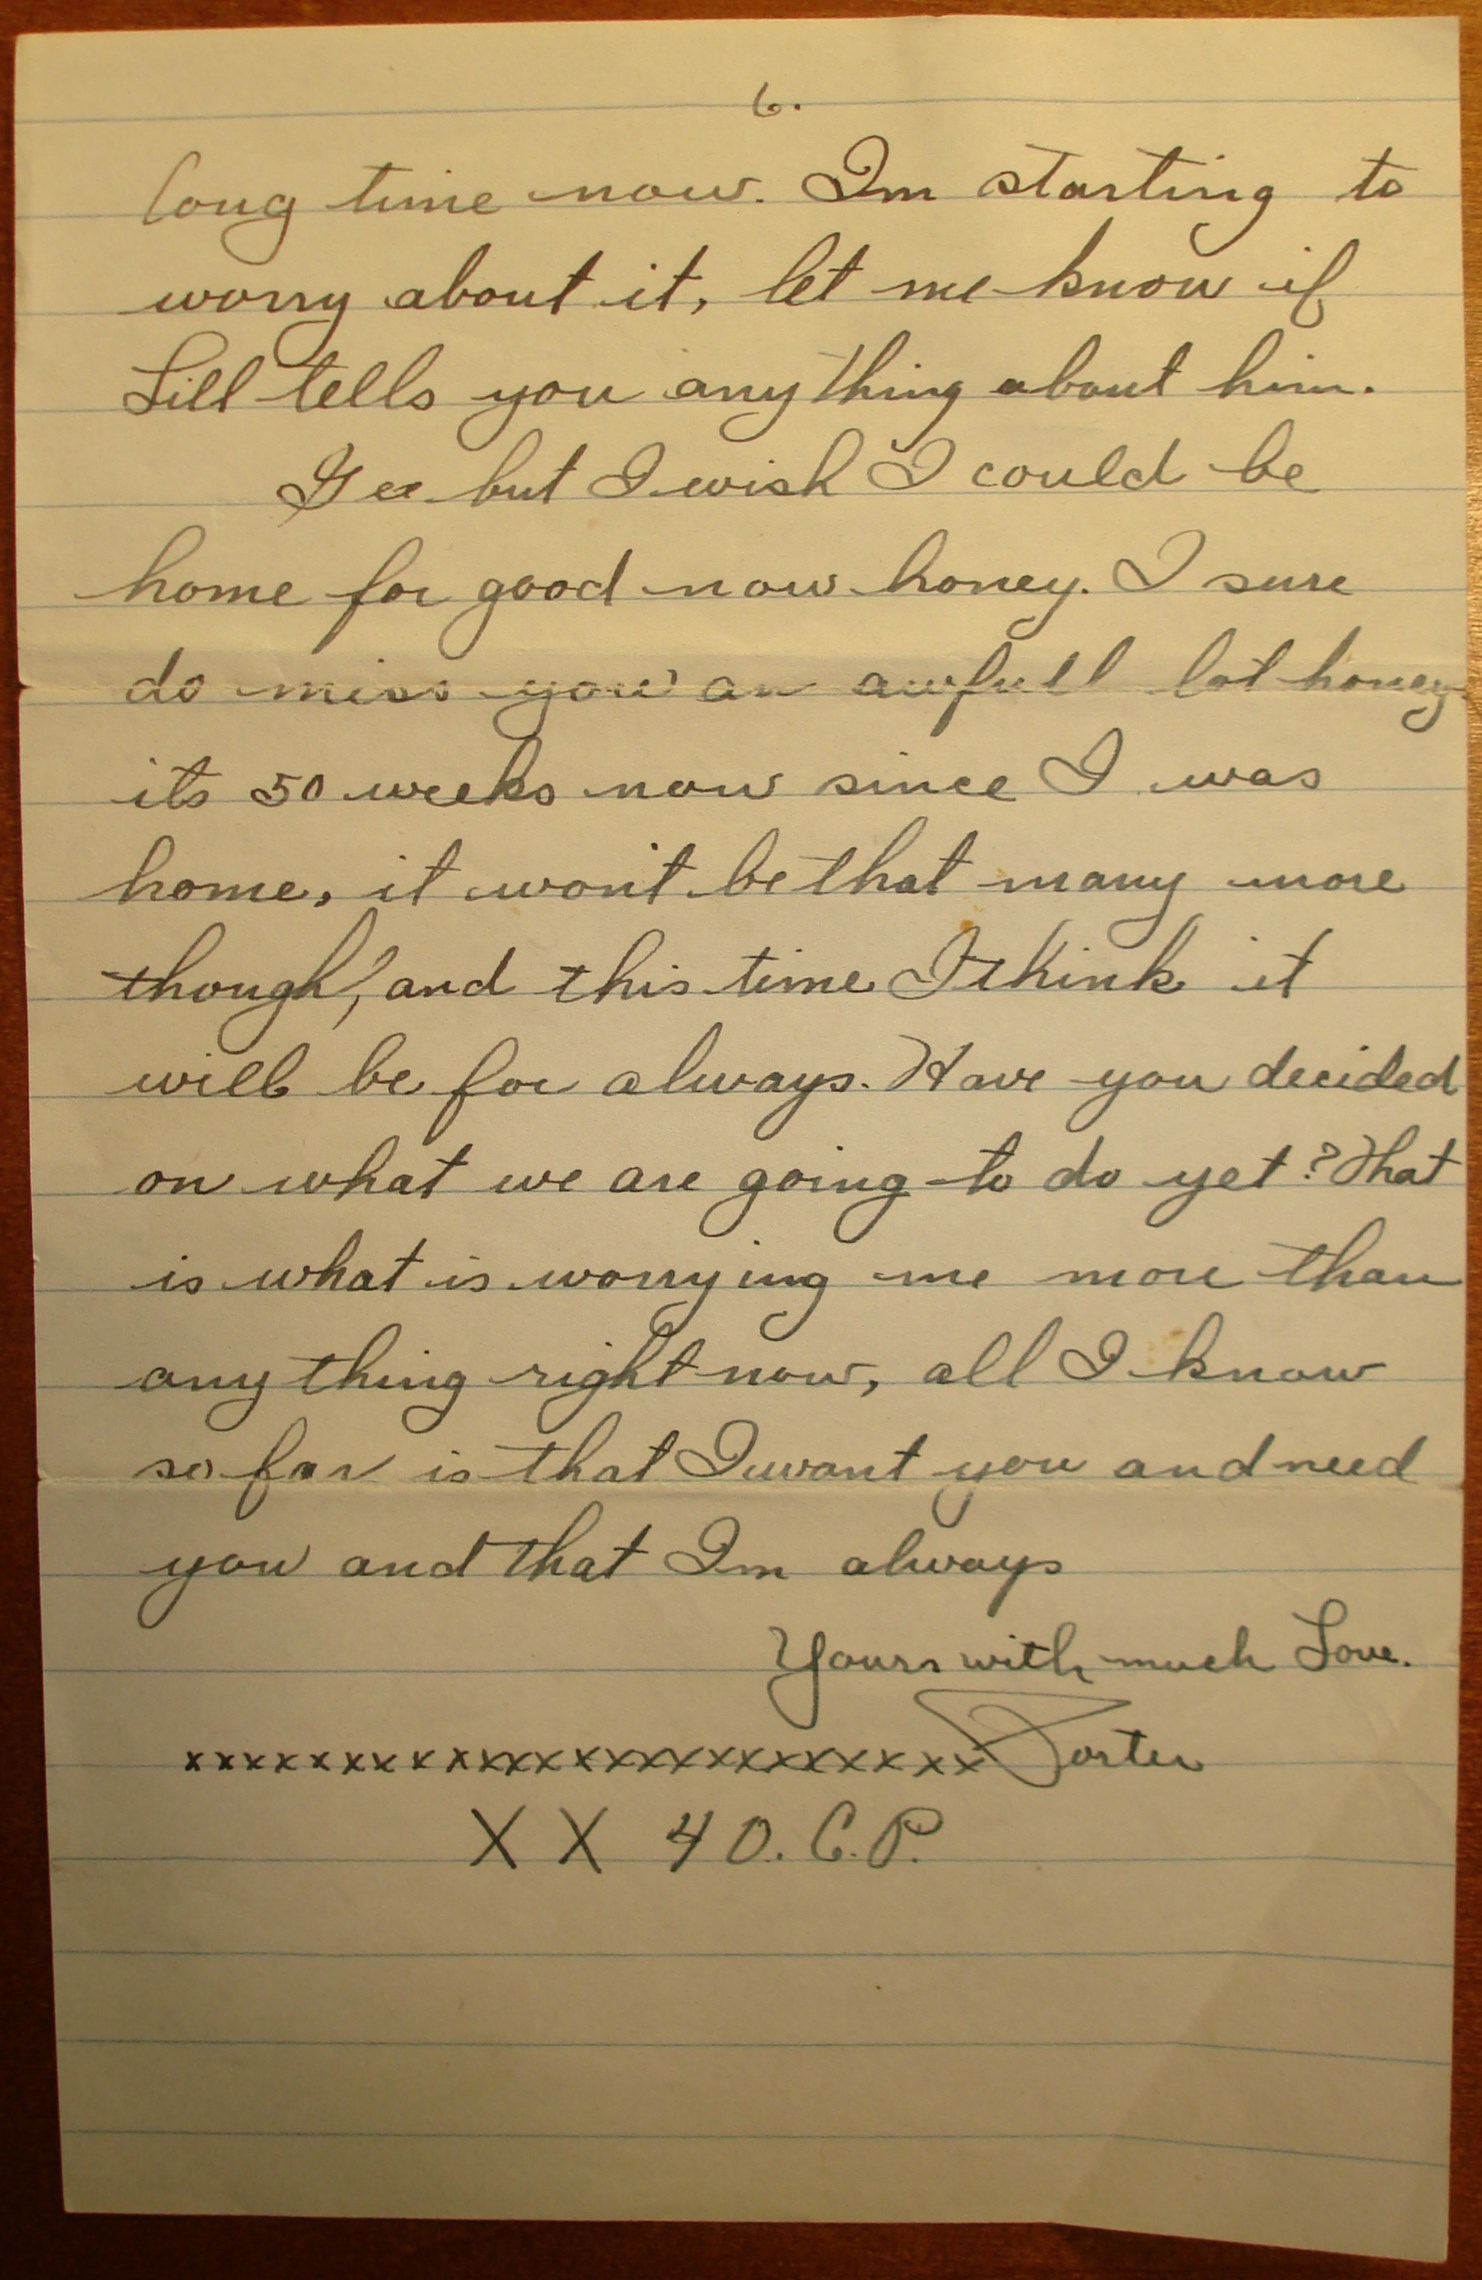 6.
long time now. Im starting to
worry about it, let me know if
Lill tells you anything about him.
Gee but I wish I could be
home for good now honey. I sure
do miss you an awfull lot honey
its 50 weeks now since I was
home, it won't be that many more
though, and this time I think it
will be for always. Have you decided
on what we are going to do yet? That
is what is worrying me more than
anything right now, all I know
so far is that I want you and need
you and that Im always
Yours with much Love.
xxxxxxxxxxxxxxxxxxxxxxxxx Porter
X X 40. C.P.